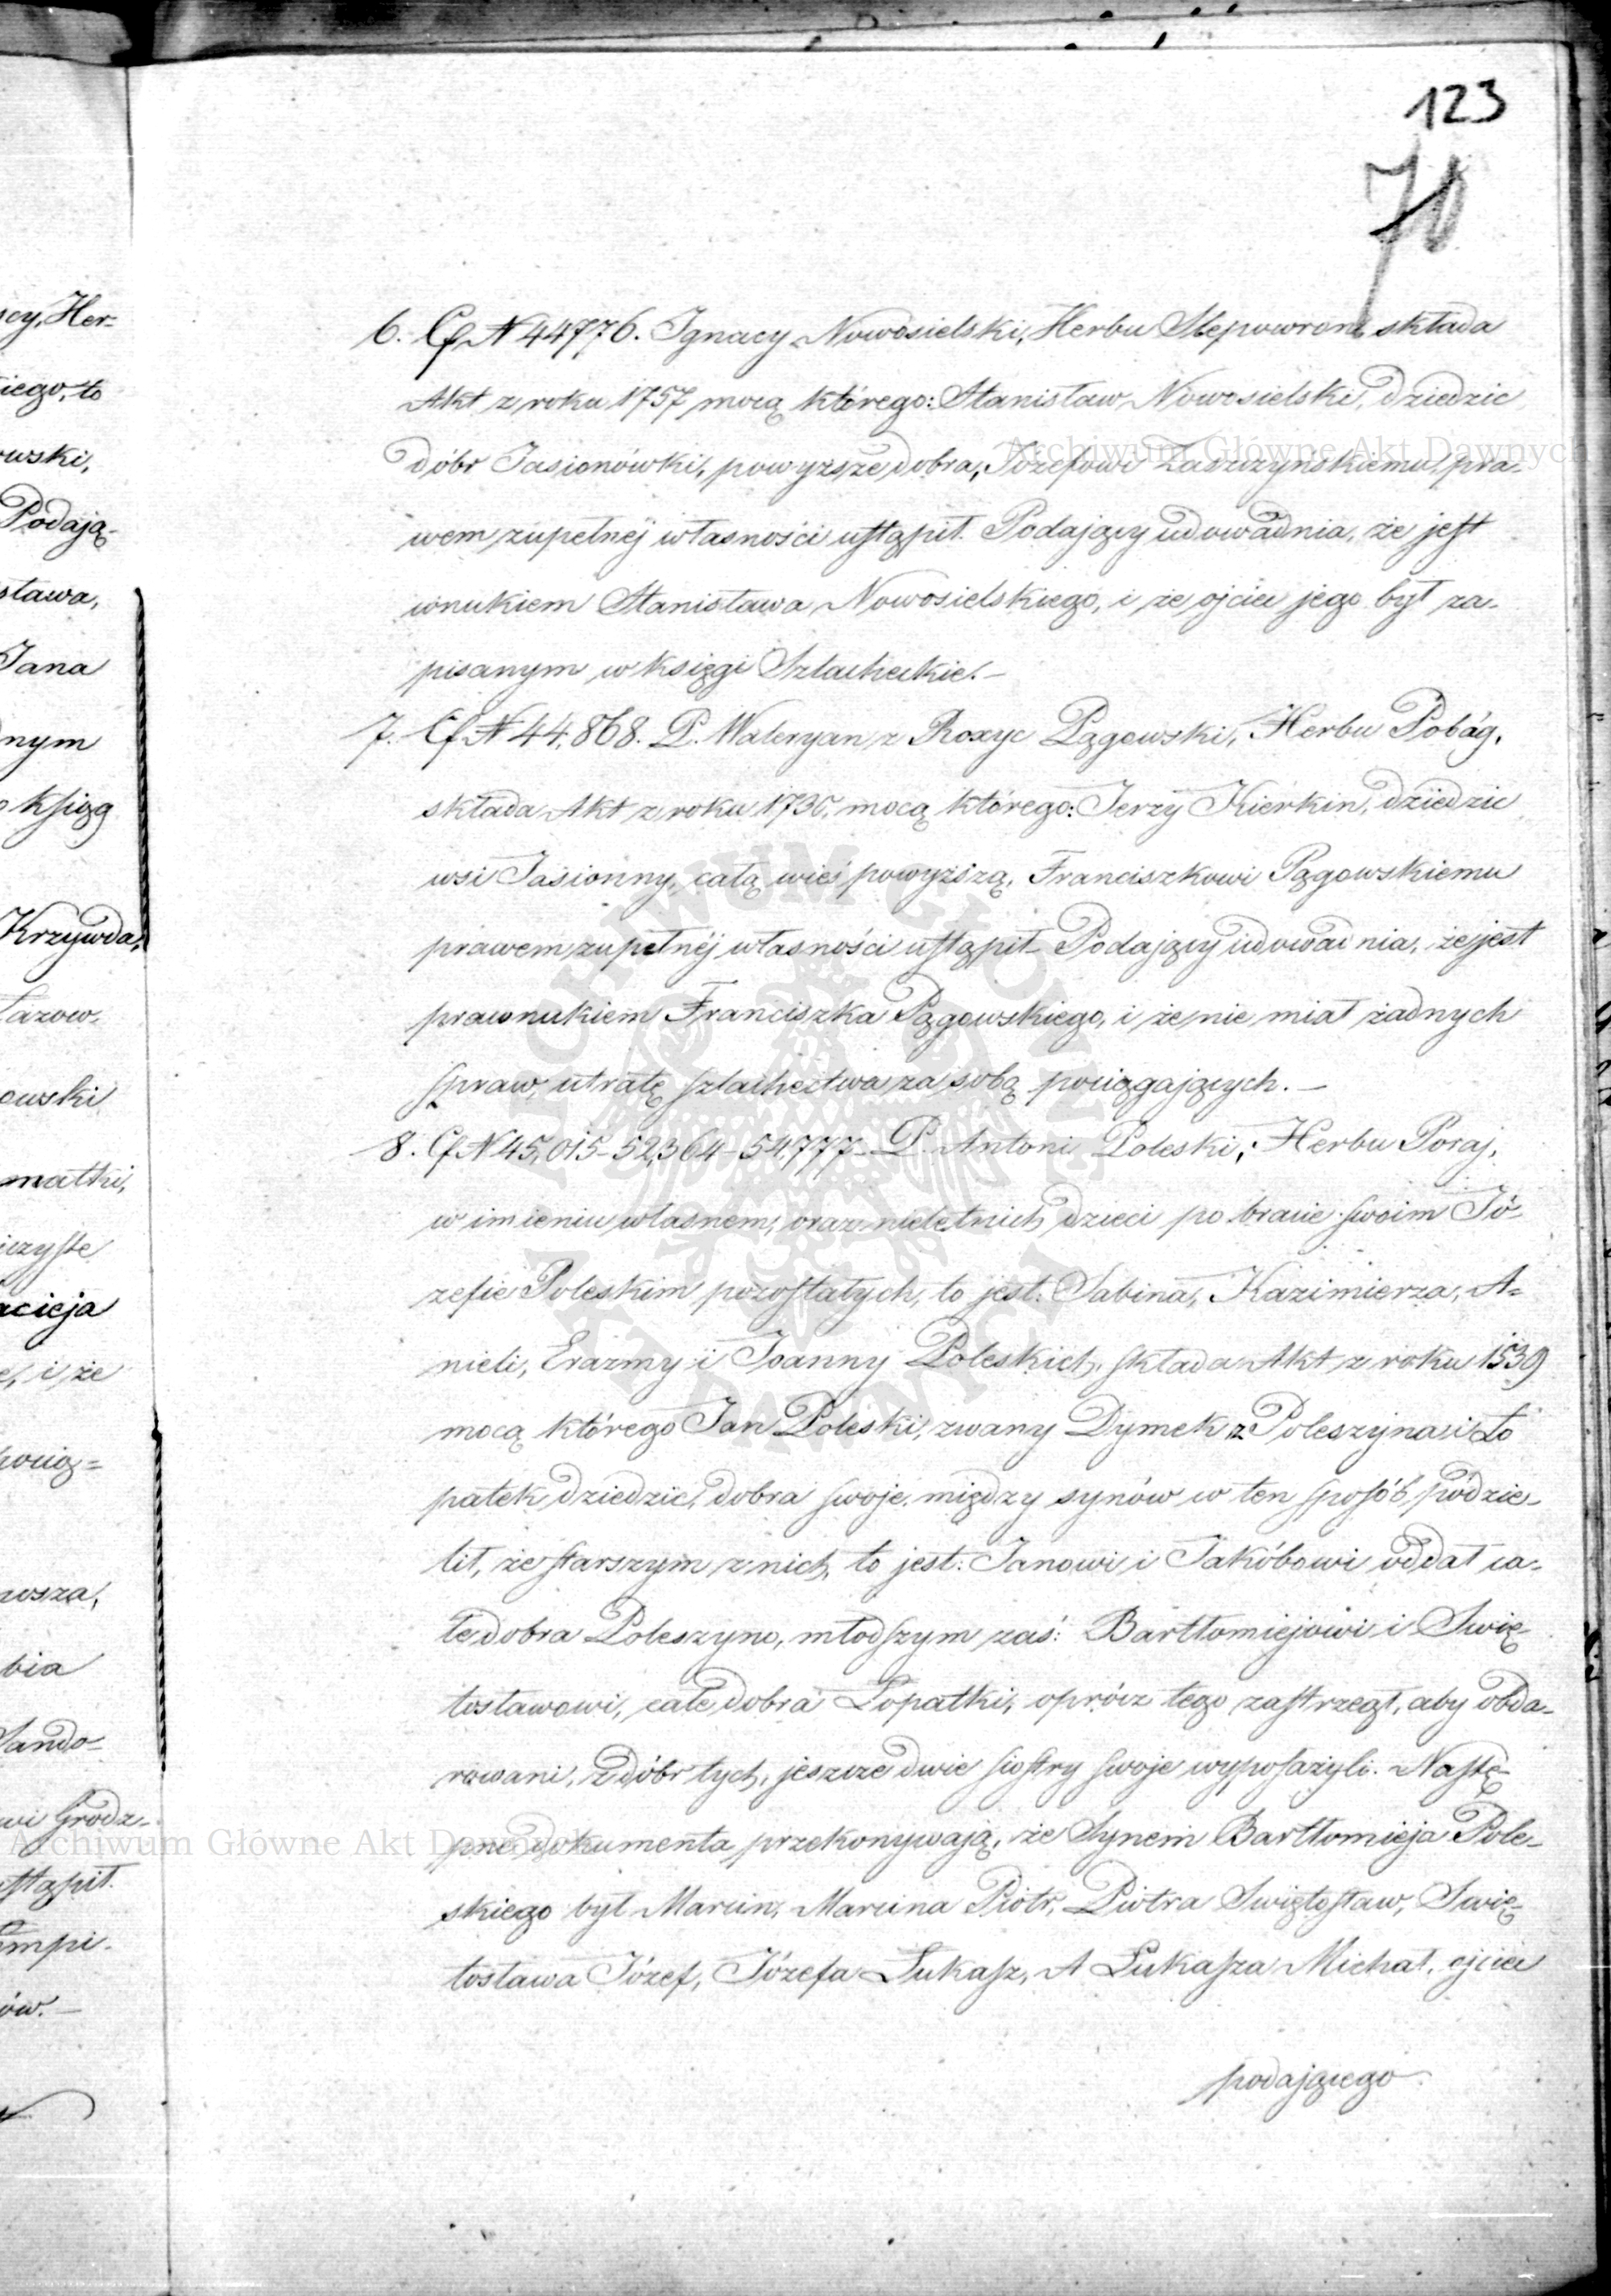 123
70
6. Cf N 44776. Ignacy Nowosielski, Herbu Slepowron składa
Akt z roku 1757 mocą którego: Stanisław Nowosielski, dziedzic
dóbr Jasionówki, powyższe dobra, Józefowi Zaszczyńskiemu, pra-
wem zupełnéj własności ustąpił. Podający udowadnia, że jest
wnukiem Stanisława Nowosielskiego, i że ojciec jego był za-
pisanym w księgi Szlacheckie. —
7. Cf N 44,868. P. Waleryan z Roxyc Pągowski, Herbu Pobóg,
składa Akt z roku 1736, mocą którego: Jerzy Kierkin, dziedzic
wsi Jasionny, całą wieś powyższą, Franciszkowi Pągowskiemu
prawem zupełnéj własności ustąpił – Podający udowadnia, że jest
prawnukiem Franciszka Pągowskiego, i że nie miał żadnych
spraw, utratę szlachectwa za sobą pociągających. —
8. Cf N 45,015 – 52,364 – 54,777 – P. Antoni Poleski, Herbu Poraj,
w imieniu własnem, oraz nieletnich dzieci po bracie swoim Jó-
zefie Poleskim pozostałych, to jest: Sabina, Kazimierza, A-
nieli, Erazmy i Joanny Poleskich, składa Akt z roku 1539
mocą którego Jan Poleski, zwany Dymek z Poleszyna i Ło
patek dziedzic, dobra swoje, między synów w ten sposób podzie-
lił, że starszym z nich, to jest: Janowi i Jakóbowi oddał ca-
łe dobra Poleszyno, młodszym zaś: Bartłomiejowi i Swię-
tosławowi, całe dobra Łopatki, oprócz tego zastrzegł, aby obda-
rowani, z dóbr tych, jeszcze dwie siostry swoje wyposażyli. Nastę-
pne dokumenta przekonywają, że Synem Bartłomieja Pole-
skiego był Marcin, Marcina Piotr, Piotra Swiętosław, Swię-
tosława Józef, Józefa Łukasz, A Łukasza Michał, ojciec
podającego
Archiwum Główne Akt Dawnych
ARCHIWUM GŁÓWNE
AKT DAWNYCH
Archiwum Główne Akt Dawnych